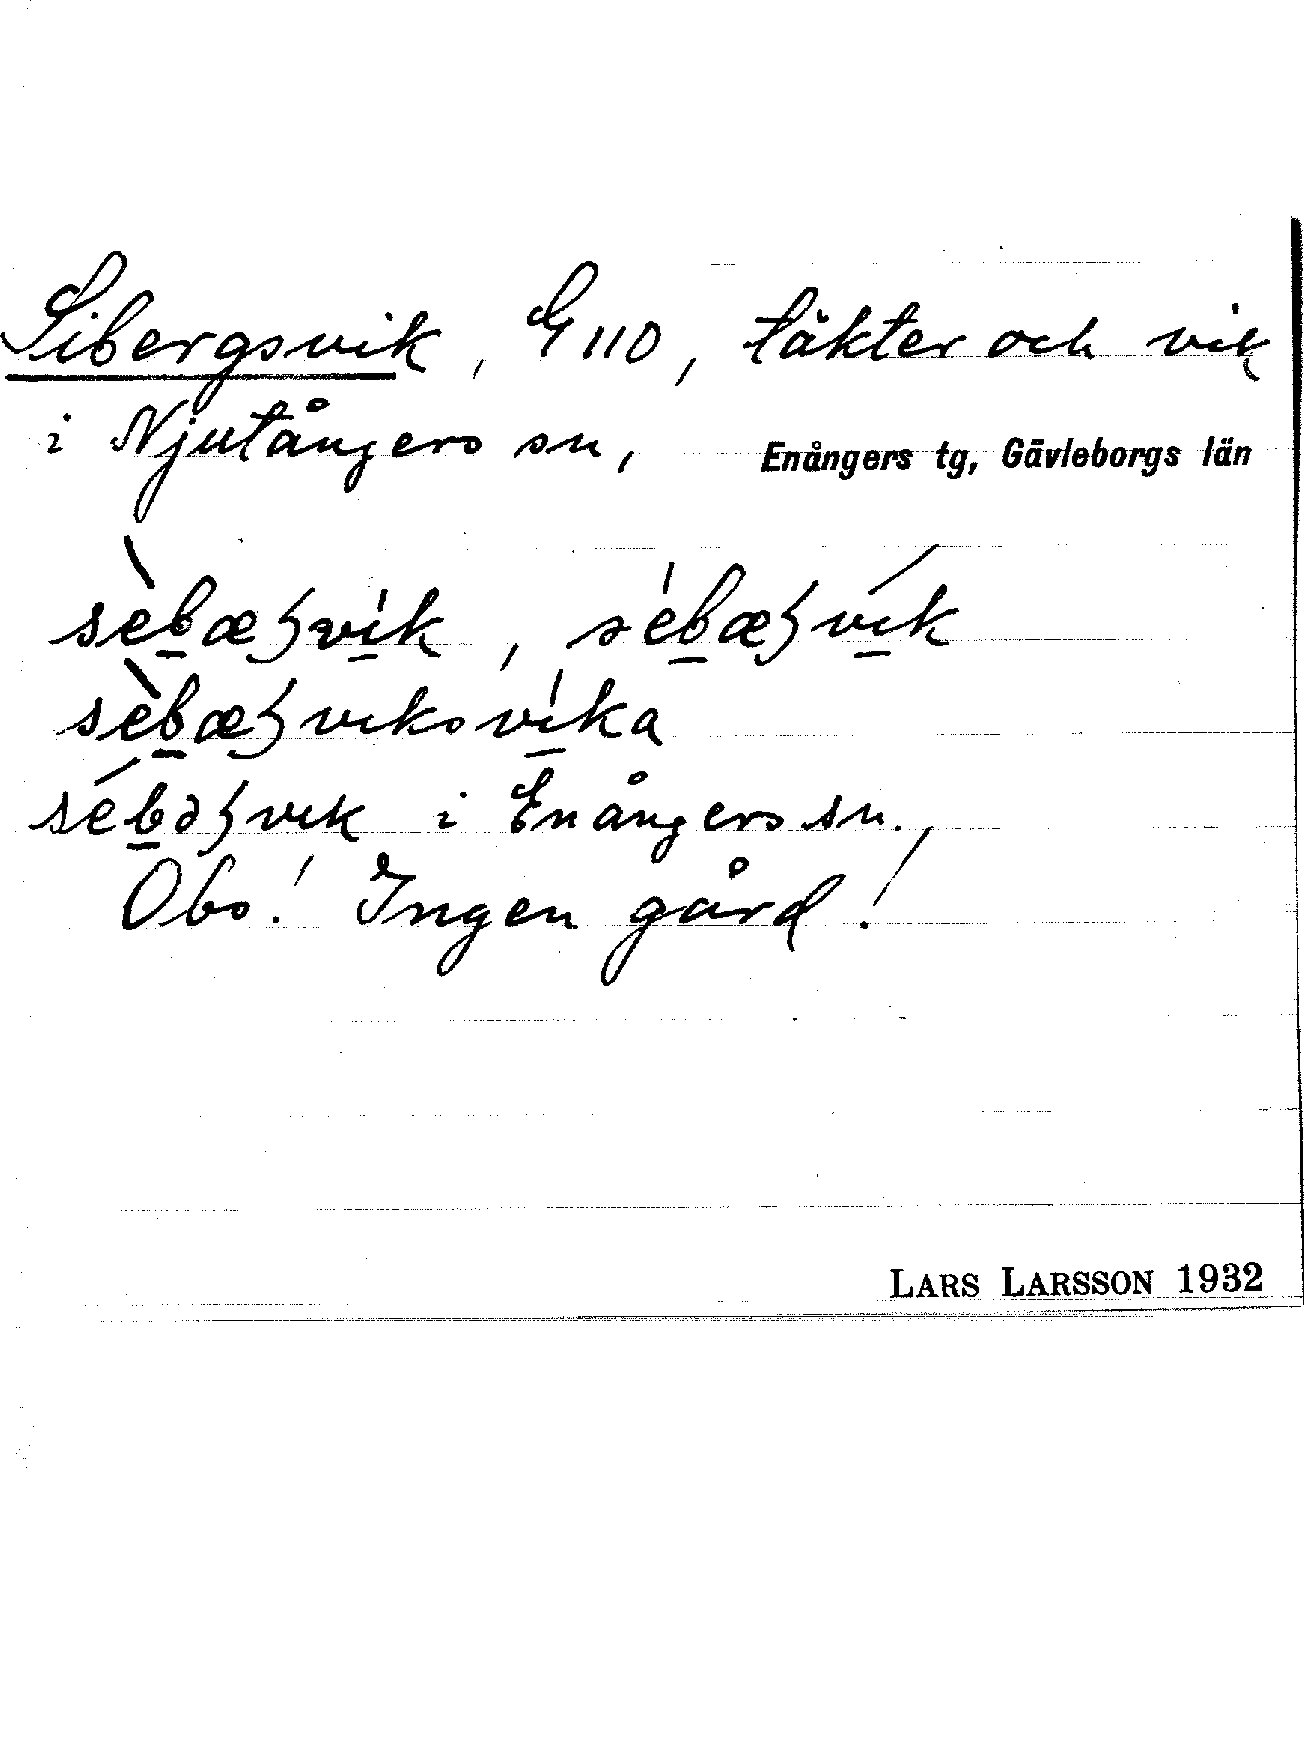 Sibergsvik, G 110, täkter och vik
i Njutångers sn, Enångers tg, Gävleborgs län
sèbæʂvík, sébæʂvík
sèbæʂviksvíka
sébəʂvik i Enångers sn.,
Obs! Ingen gård!
LARS LARSSON 1932